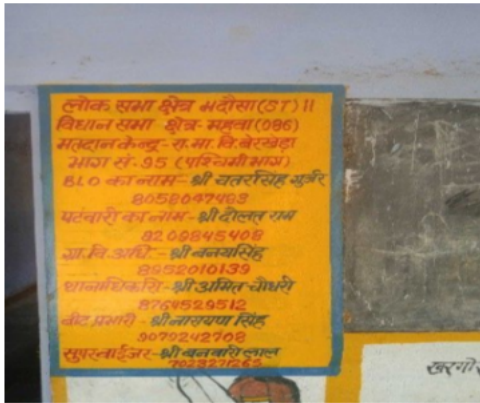 लोक सभा क्षेत्र मदौसा (ST) 11
विधान सभा क्षेत्र- महवा (086)
मतदान केन्द्र- रा. मा. वि. बेरखेड़ा
भाग सं. 95 (पश्चिमी भाग)
BLO का नाम - श्री चतरसिंह गुर्जर
8058047483
पटवारी का नाम - श्री दौलत राम
8209845408
ग्रा. वि. अधि. - श्री बनयसिंह
8952010139
थानाधिकारी - श्री अमित चौधरी
8764529512
बीट प्रभारी - श्री नारायण सिंह
9079242708
सुपरवाईजर - श्री बनवारी लाल
7023271265
खरगो